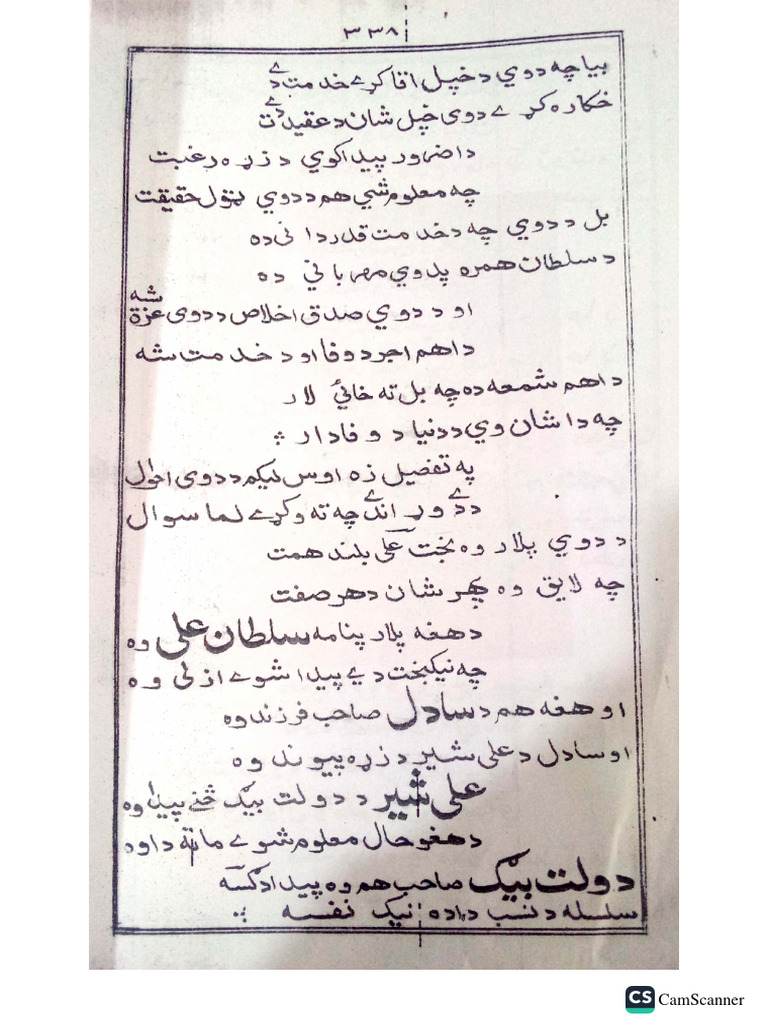 ۳۳۸
بیا چه دوي د خپل اقا کړے خدمت دے
ښکاره کړے دوی خپل شان د عقیدت دے
دا ضرور پیدا کوي د زړه رغبت
چه معلوم شي هم د دوي ټول حقیقت
بل د دوي چه د خدمت قدردانی ده
د سلطان همره پدوي مهرباني ده
او د دوي صدق اخلاص د دوی عزة شه
دا هم اجر د وفا او د خدمت شه
دا هم شمعه ده چه بل ته ځائي لار
چه دا شان وي د دنیا د وفادار
په تفصیل زه اوس لیکم د دوی احوال
دے د وړاندے چه ته وکړے لما سوال
د دوي پلار وه بخت علی بلند همت
چه لایق وه پهر شان د هر صفت
د هغه پلار پنامه سلطان علی وه
چه نیکبخت دے پیدا شوے ازلی وه
او هغه هم د سادل صاحب فرزند وه
او سادل د علی شیر د زړه پیوند وه
علی شیر د دولت بیګ څنے پیدا وه
د هغو حال معلوم شوے ماته دا وه
دولت بیګ صاحب هم وه پیدا د کسه
سلسله د نسب داده نیک نفسه
CS CamScanner